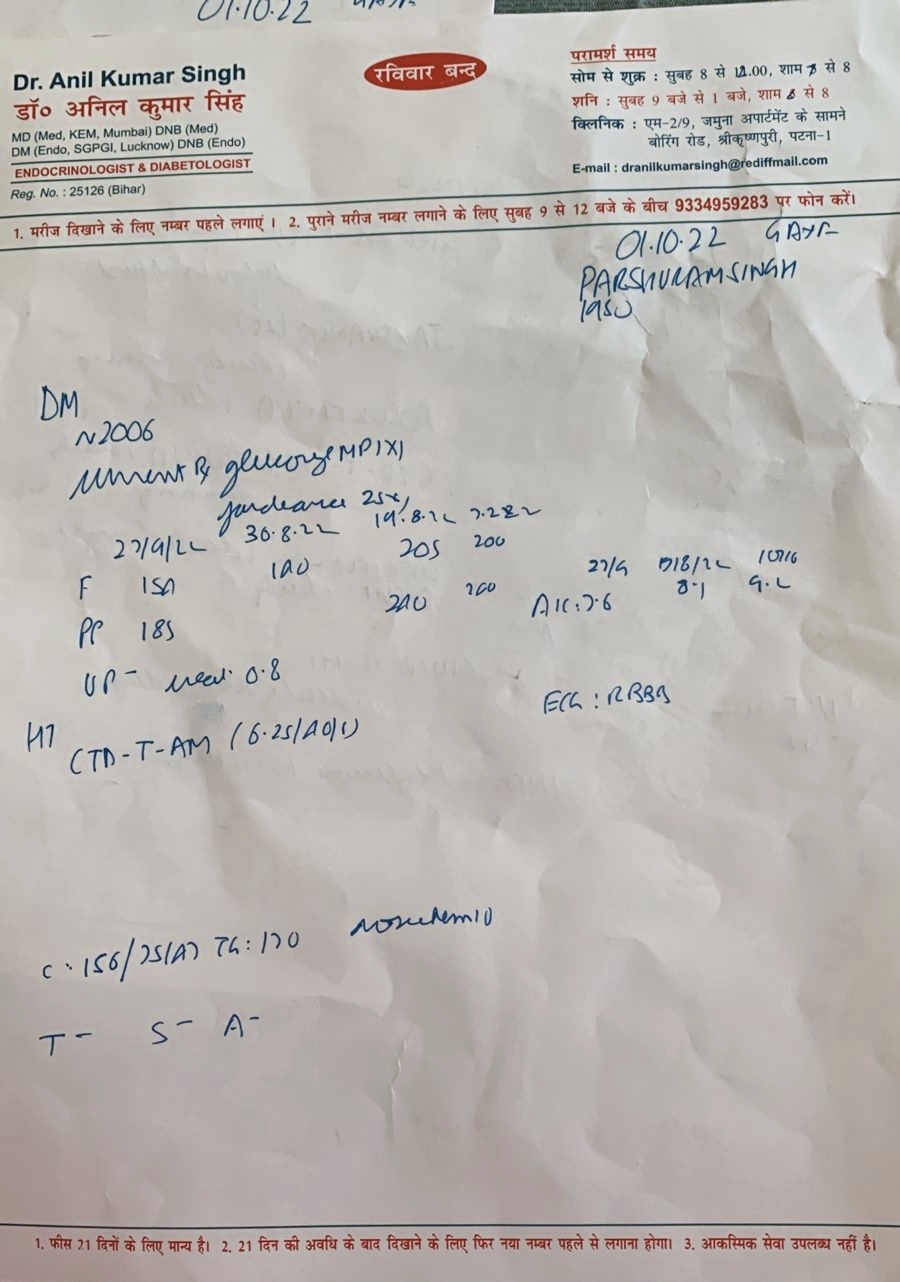 01.10.22
Dr. Anil Kumar Singh
डॉ० अनिल कुमार सिंह
MD (Med, KEM, Mumbai) DNB (Med)
DM (Endo, SGPGI, Lucknow) DNB (Endo)
ENDOCRINOLOGIST & DIABETOLOGIST
Reg. No. : 25126 (Bihar)
रविवार बन्द
परामर्श समय
सोम से शुक्र : सुबह 8 से 12.00, शाम से 8
शनि : सुबह 9 बजे से 1 बजे, शाम 6 से 8
क्लिनिक : एम-2/9, जमुना अपार्टमेंट के सामने
बोरिंग रोड, श्रीकृष्णपुरी, पटना-1
E-mail : dranilkumarsingh@rediffmail.com
1. मरीज दिखाने के लिए नम्बर पहले लगाएं । 2. पुराने मरीज नम्बर लगाने के लिए सुबह 9 से 12 बजे के बीच 9334959283 पर फोन करें।
01.10.22
PARSHURAM SINGH
1950
DM
~2006
current Rx MP 1X1
Jardiance 25
27/9/22 30.8.22 19.8.22
F 205 200
PP 185 260
27/9
A1C: 7.6 8.1
UP - 0.8
ECG : RBBB
HT
CTD-T-AM (6.25/40/
C : 156/75 TG : 170
T - S - A -
1. फीस 21 दिनों के लिए मान्य है। 2. 21 दिन की अवधि के बाद दिखाने के लिए फिर नया नम्बर पहले से लगाना होगा। 3. आकस्मिक सेवा उपलब्ध नहीं है।